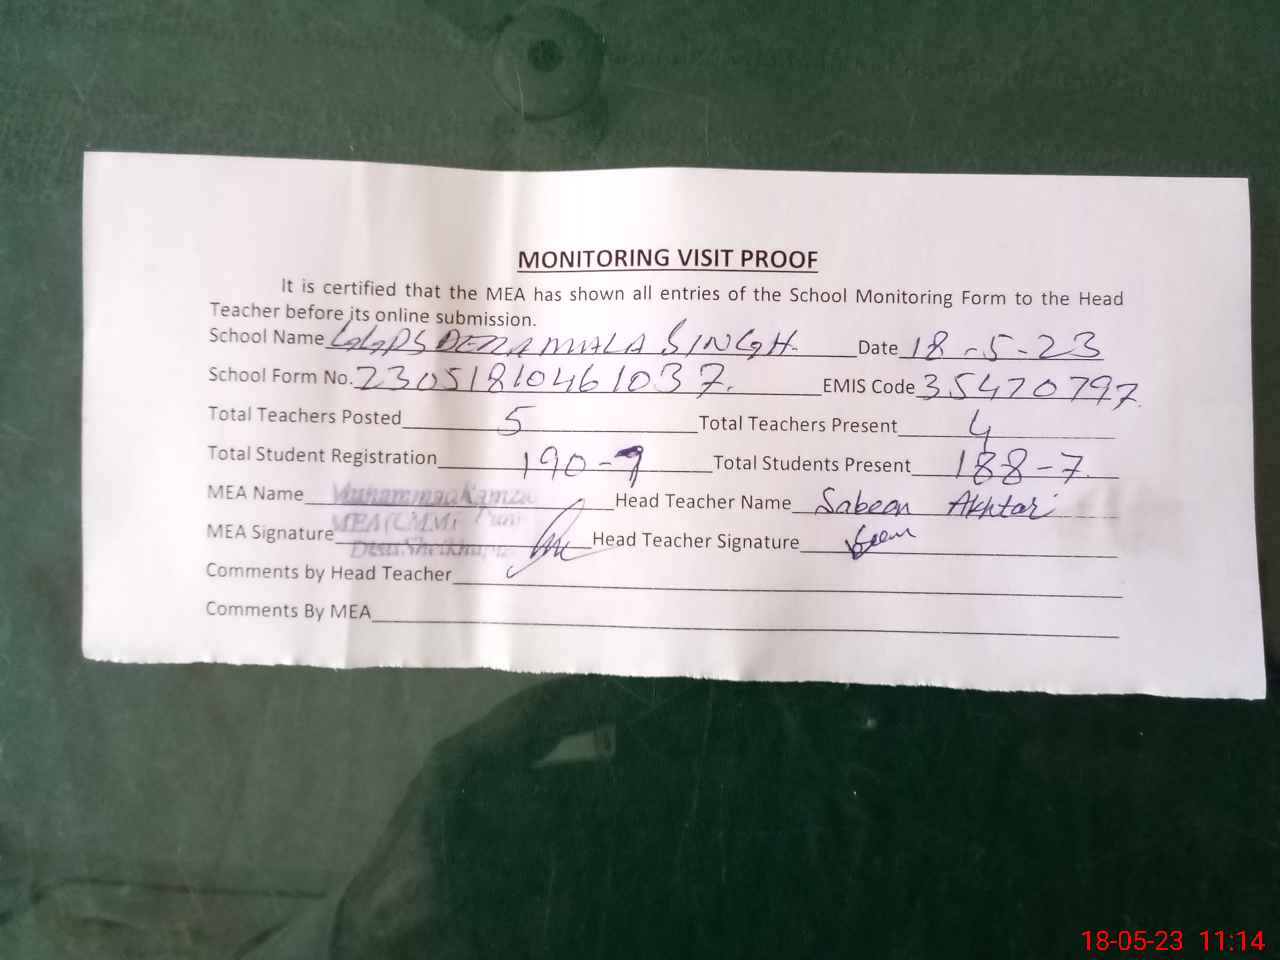 MONITORING VISIT PROOF
It is certified that the MEA has shown all entries of the School Monitoring Form to the Head
Teacher before its online submission.
School Name GGPS DERA MALA SINGH. Date 18-5-23
School Form No. 2305181046 1037. EMIS Code 35470797
Total Teachers Posted 5 Total Teachers Present 4
Total Student Registration 190-9 Total Students Present 188-7
MEA Name Muhammad Head Teacher Name Sabeen Akhtari
MEA Signature MEA Head Teacher Signature
Comments by Head Teacher
Comments By MEA
18-05-23 11:14